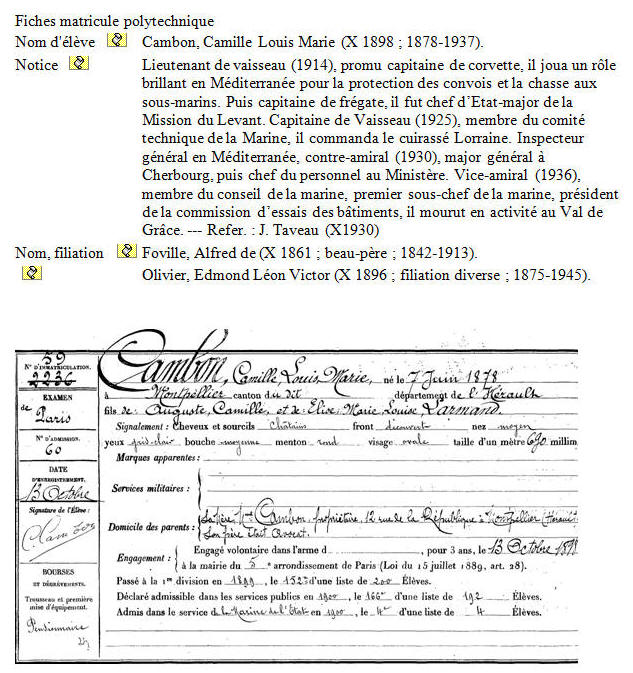 Fiches matricule polytechnique
Nom d'élève Cambon, Camille Louis Marie (X 1898 ; 1878-1937).
Notice Lieutenant de vaisseau (1914), promu capitaine de corvette, il joua un rôle
brillant en Méditerranée pour la protection des convois et la chasse aux
sous-marins. Puis capitaine de frégate, il fut chef d'Etat-major de la
Mission du Levant. Capitaine de Vaisseau (1925), membre du comité
technique de la Marine, il commanda le cuirassé Lorraine. Inspecteur
général en Méditerranée, contre-amiral (1930), major général à
Cherbourg, puis chef du personnel au Ministère. Vice-amiral (1936),
membre du conseil de la marine, premier sous-chef de la marine, président
de la commission d'essais des bâtiments, il mourut en activité au Val de
Grâce. --- Refer. : J. Taveau (X1930)
Nom, filiation Foville, Alfred de (X 1861 ; beau-père ; 1842-1913).
Olivier, Edmond Léon Victor (X 1896 ; filiation diverse ; 1875-1945).
59
N° D'IMMATRICULATION.
2236
EXAMEN
de Paris
N° D'ADMISSION.
60
DATE
D'ENREGISTREMENT.
13 Octobre
Signature de l'Élève :
C. Cambon
BOURSES
ET DÉGRÈVEMENTS.
Trousseau et première
mise d'équipement.
Pensionnaire
Cambon, Camille, Louis, Marie, né le 7 Juin 1878
à Montpellier canton du dit département de l'Hérault
fils de Auguste, Camille, et de Elise, Marie Louise Larmand.
Signalement : Cheveux et sourcils Châtains front découvert nez moyen
yeux gris-clair bouche moyenne menton rond visage ovale taille d'un mètre 690 millim
Marques apparentes :
Services militaires :
Domicile des parents : Sa Mère, Mme Cambon, propriétaire, 12 rue de la République à Montpellier (Hérault
Son père était Avocat.
Engagement : Engagé volontaire dans l'arme d , pour 3 ans, le 13 Octobre 1898
à la mairie du 5e arrondissement de Paris (Loi du 15 juillet 1889, art. 28).
Passé à la 1re division en 1899, le 152e d'une liste de 200 Élèves.
Déclaré admissible dans les services publics en 1900, le 166e d'une liste de 192 Élèves.
Admis dans le service de la Marine de l'Etat en 1900, le 4e d'une liste de 4 Élèves.